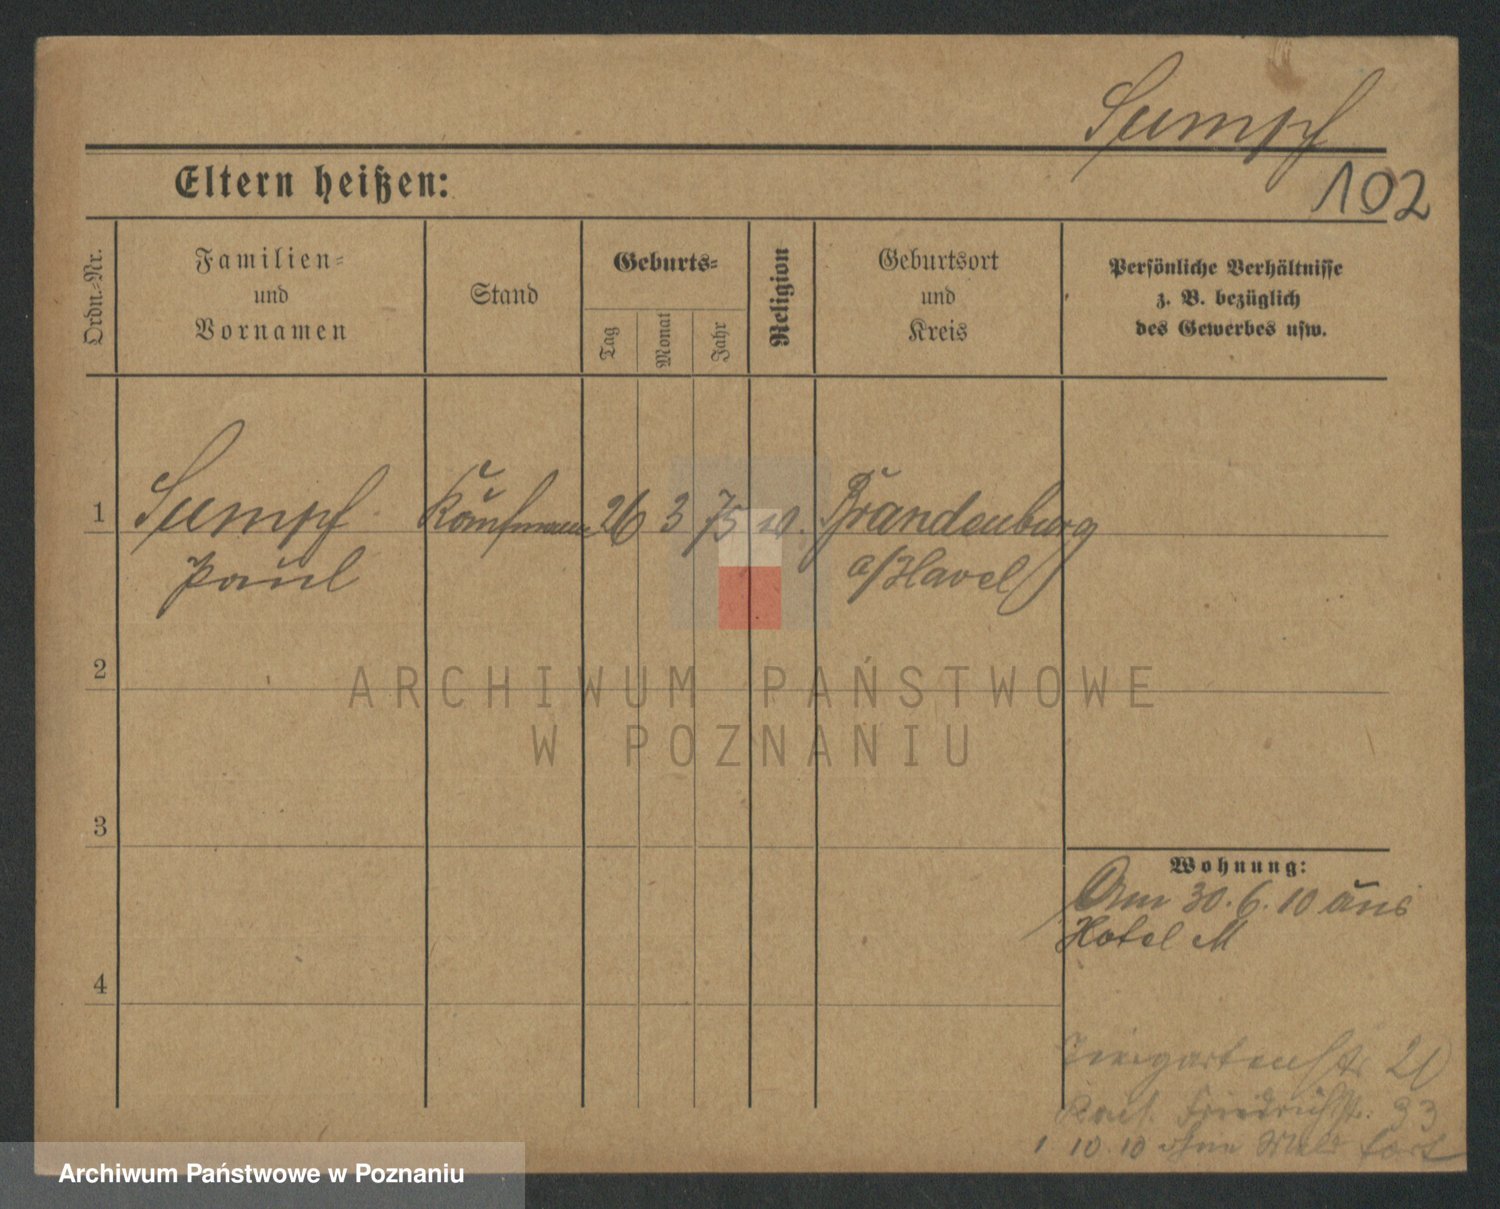 Sumpf
102
Eltern heißen:
Ordn.-Nr.
Familien-
und
Vornamen
Stand
Geburts-
Tag
Monat
Jahr
Religion
Geburtsort
und
Kreis
Persönliche Verhältnisse
z. B. bezüglich
des Gewerbes usw.
1
Sumpf Kaufmann 26 3 75 Brandenburg
Paul a/Havel
2
3
4
Wohnung:
Am 30.6.10 aus
Hotel M
Tiergartenstr 20
Friedrichstr. 33
1.10.10 ohne fort
ARCHIWUM PAŃSTWOWE
W POZNANIU
Archiwum Państwowe w Poznaniu